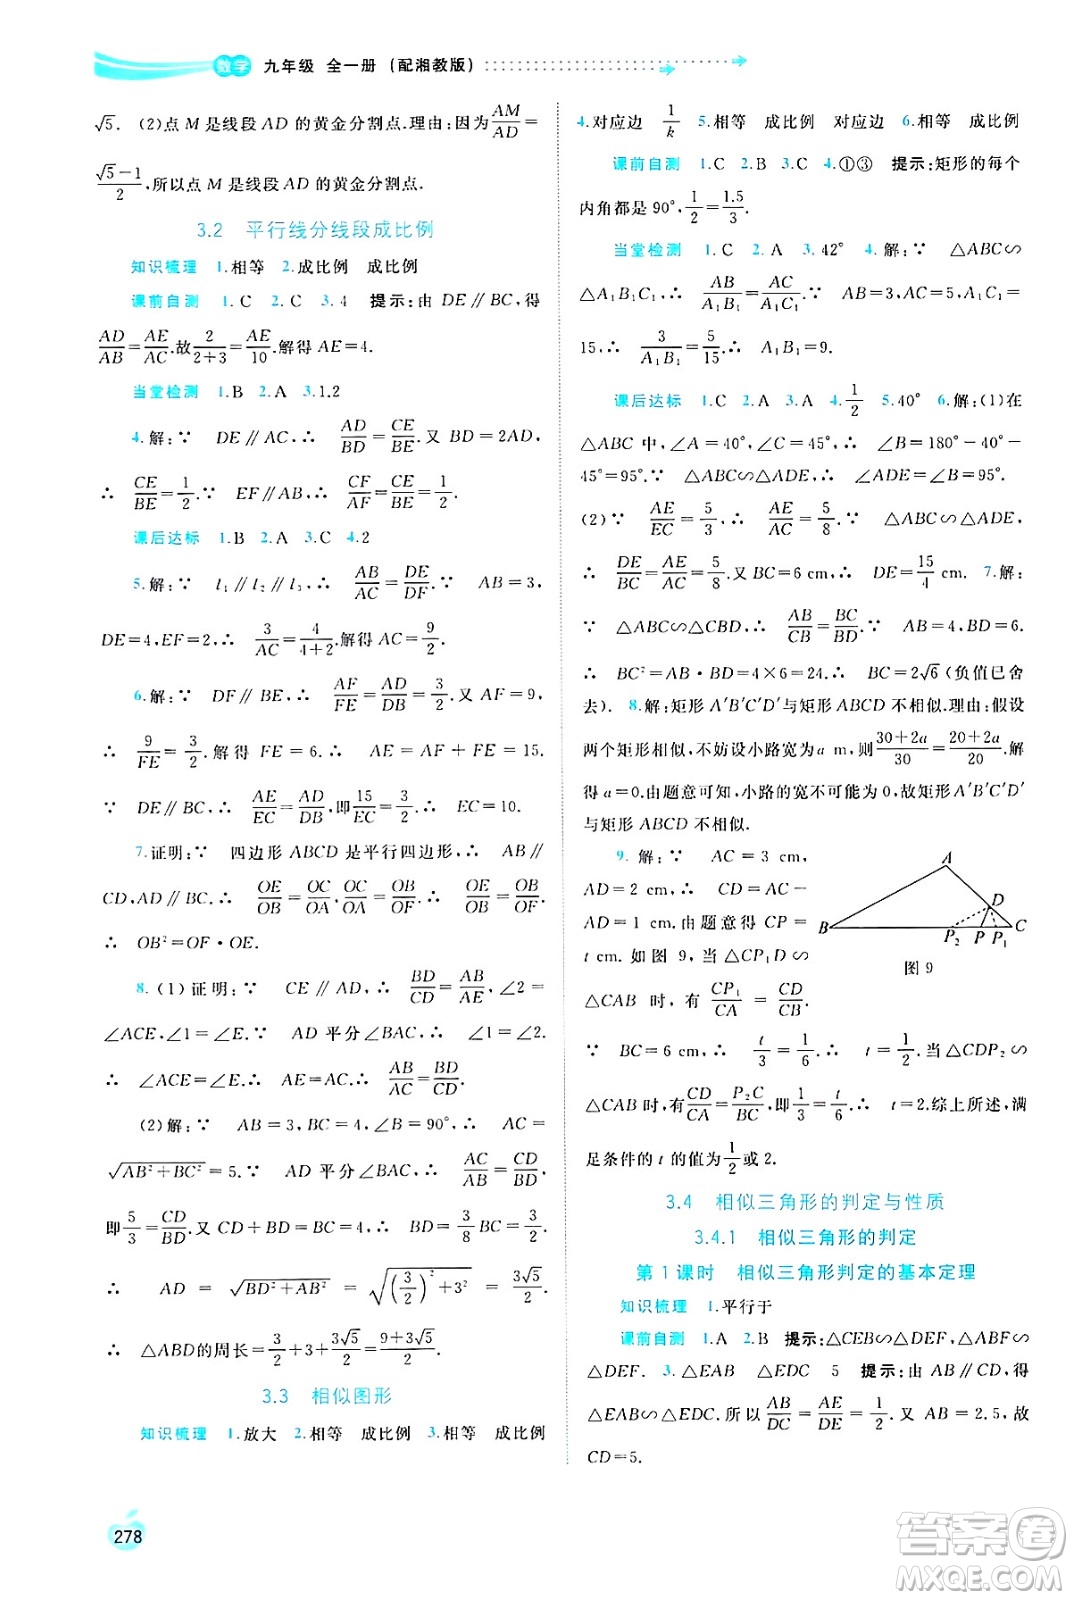 数学 九年级 全一册 (配湘教版)
√5. (2)点 M 是线段 AD 的黄金分割点.理由:因为 AM/AD =
(√5-1)/2,所以点 M 是线段 AD 的黄金分割点.
3.2 平行线分线段成比例
知识梳理 1.相等 2.成比例 成比例
课前自测 1.C 2.C 3.4 提示:由 DE∥BC,得
AD/AB=AE/AC.故 2/(2+3)=AE/10.解得 AE=4.
当堂检测 1.B 2.A 3.1.2
4.解:∵ DE∥AC,∴ AD/BD=CE/BE.又 BD=2AD,
∴ CE/BE=1/2.∵ EF∥AB,∴ CF/AF=CE/BE=1/2.
课后达标 1.B 2.A 3.C 4.2
5.解:∵ l₁∥l₂∥l₃,∴ AB/AC=DE/DF.∵ AB=3,
DE=4,EF=2,∴ 3/AC=4/(4+2).解得 AC=9/2.
6.解:∵ DF∥BE,∴ AF/FE=AD/DB=3/2.又 AF=9,
∴ 9/FE=3/2.解得 FE=6.∴ AE=AF+FE=15.
∵ DE∥BC,∴ AE/EC=AD/DB,即15/EC=3/2.∴ EC=10.
7.证明:∵ 四边形 ABCD 是平行四边形,∴ AB∥
CD,AD∥BC.∴ OE/OB=OC/OA,OC/OA=OB/OF.∴ OE/OB=OB/OF.
∴ OB²=OF·OE.
8.(1)证明:∵ CE∥AD,∴ BD/CD=AB/AE,∠2=
∠ACE,∠1=∠E.∵ AD 平分∠BAC,∴ ∠1=∠2.
∴ ∠ACE=∠E.∴ AE=AC.∴ AB/AC=BD/CD.
(2)解:∵ AB=3,BC=4,∠B=90°,∴ AC=
√(AB²+BC²)=5.∵ AD 平分∠BAC,∴ AC/AB=CD/BD,
即5/3=CD/BD.又 CD+BD=BC=4,∴ BD=3/8BC=3/2.
∴ AD=√(BD²+AB²)=√((3/2)²+3²)=3√5/2.
∴ △ABD的周长=3/2+3+3√5/2=(9+3√5)/2.
3.3 相似图形
知识梳理 1.放大 2.相等 成比例 3.相等 成比例
4.对应边 1/k 5.相等 成比例 对应边 6.相等 成比例
课前自测 1.C 2.B 3.C 4.①③ 提示:矩形的每个
内角都是 90°,1/2=1.5/3.
当堂检测 1.C 2.A 3.42° 4.解:∵ △ABC∽
△A₁B₁C₁,∴ AB/A₁B₁=AC/A₁C₁.∵ AB=3,AC=5,A₁C₁=
15,∴ 3/A₁B₁=5/15.∴ A₁B₁=9.
课后达标 1.C 2.A 3.A 4.1/2 5.40° 6.解:(1)在
△ABC 中,∠A=40°,∠C=45°,∴ ∠B=180°-40°-
45°=95°.∵ △ABC∽△ADE,∴ ∠ADE=∠B=95°.
(2)∵ AE/EC=5/3,∴ AE/AC=5/8.∵ △ABC∽△ADE,
∴ DE/BC=AE/AC=5/8.又 BC=6 cm,∴ DE=15/4 cm. 7.解:
∵ △ABC∽△CBD,∴ AB/CB=BC/BD.∵ AB=4,BD=6.
∴ BC²=AB·BD=4×6=24.∴ BC=2√6(负值已舍
去). 8.解:矩形 A′B′C′D′与矩形ABCD 不相似.理由:假设
两个矩形相似,不妨设小路宽为a m,则(30+2a)/30=(20+2a)/20.解
得 a=0.由题意可知,小路的宽不可能为 0,故矩形 A′B′C′D′
与矩形 ABCD 不相似.
9. 解:∵ AC=3 cm,
AD=2 cm,∴ CD=AC-
AD=1 cm.由题意得 CP=
t cm.如图 9,当△CP₁D∽
△CAB 时,有 CP₁/CA=CD/CB.
A
B
C
D
P₂
P
P₁
图 9
∵ BC=6 cm,∴ t/3=1/6.∴ t=1/2.当△CDP₂∽
△CAB 时,有CD/CA=P₂C/BC,即1/3=t/6.∴ t=2.综上所述,满
足条件的 t 的值为1/2或2.
3.4 相似三角形的判定与性质
3.4.1 相似三角形的判定
第 1 课时 相似三角形判定的基本定理
知识梳理 1.平行于
课前自测 1.A 2.B 提示:△CEB∽△DEF,△ABF∽
△DEF. 3.△EAB △EDC 5 提示:由 AB∥CD,得
△EAB∽△EDC,所以AB/DC=AE/DE=1/2.又 AB=2.5,故
CD=5.
278
答案圈
MXQE.COM